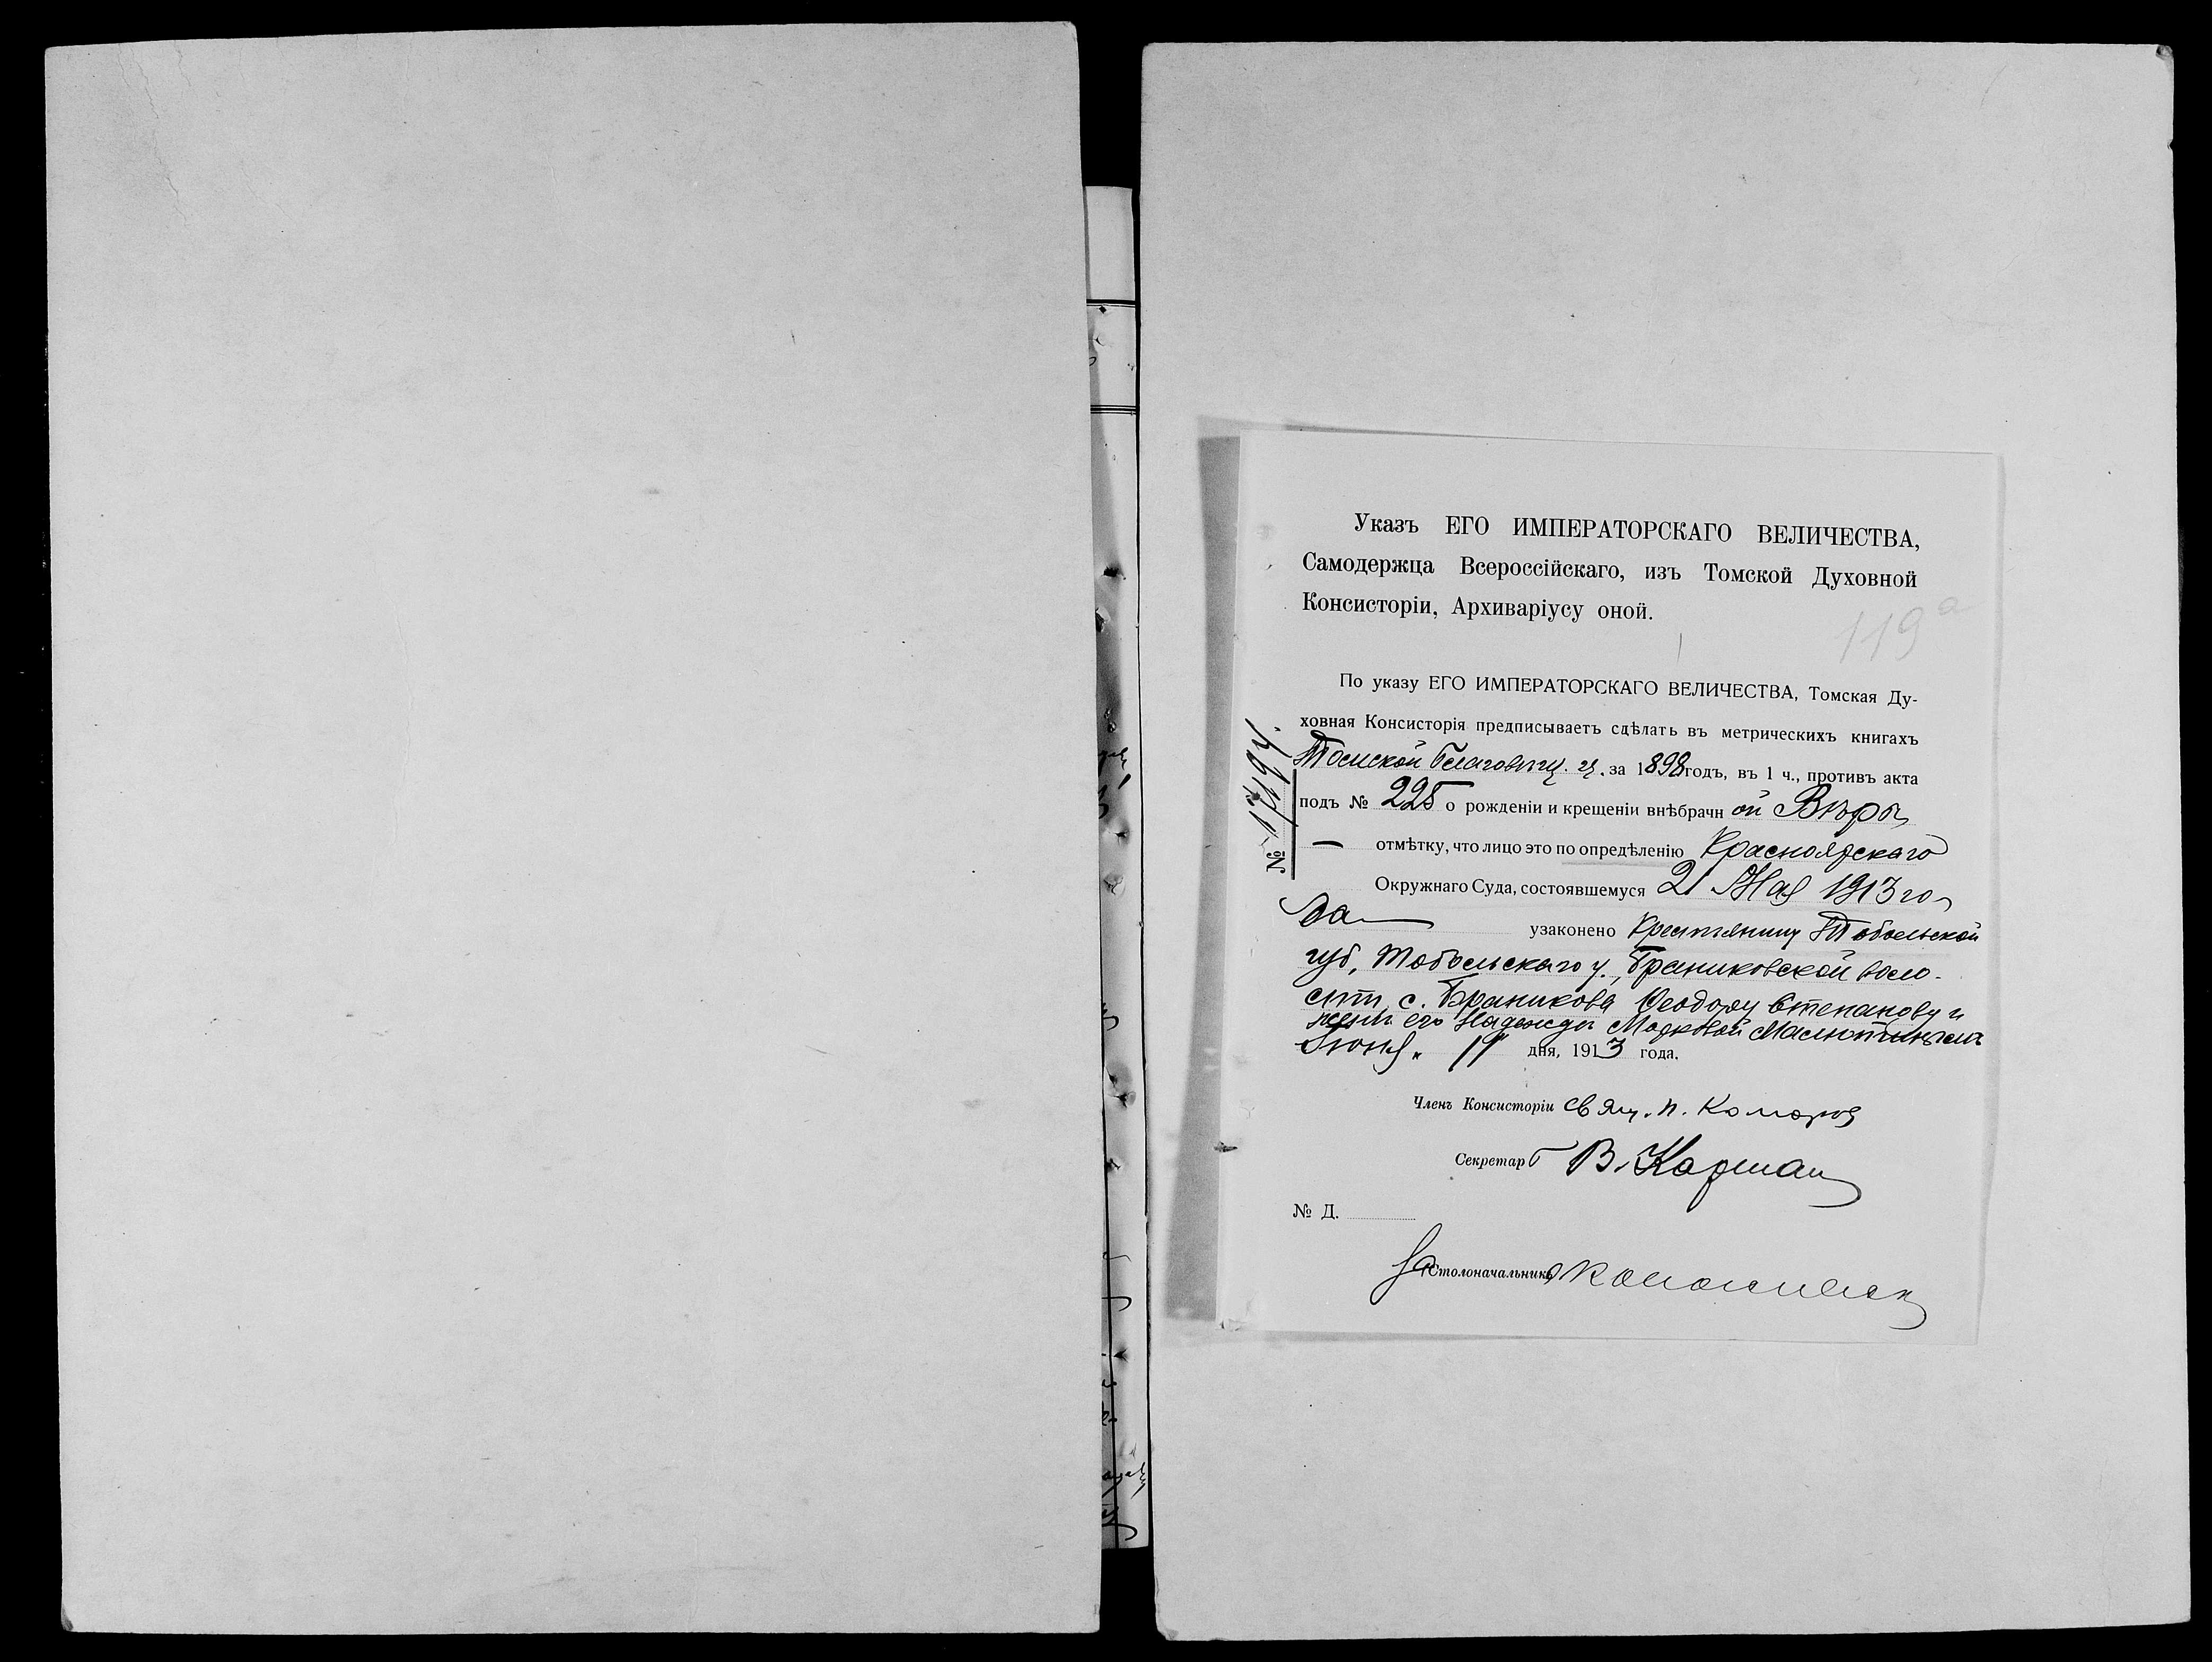 Указъ ЕГО ИМПЕРАТОРСКАГО ВЕЛИЧЕСТВА,
Самодержца Всероссійскаго, изъ Томской Духовной
Консисторіи, Архиваріусу оной.
119а
По указу ЕГО ИМПЕРАТОРСКАГО ВЕЛИЧЕСТВА, Томская Ду-
ховная Консисторія предписываетъ сдѣлать въ метрическихъ книгахъ
Томской Благовѣщ. ц. за 1898 годъ, въ 1 ч., противъ акта
подъ № 225 о рожденіи и крещеніи внѣбрачн ой Вѣры
— отмѣтку, что лицо это по опредѣленію Красноярскаго
Окружнаго Суда, состоявшемуся 21 Мая 1913 го-
да узаконено крестьянину Тобольской
губ, Тобольскаго у., Брониковской воло-
сти, с. Броникова Ѳеодору Степанову и
женѣ его Надежды Марковой Масютинымъ
Іюня 11 дня, 1913 года.
№ 17194.
Членъ Консисторіи Свящ. П. Комаровъ
Секретарь В. Карташ
№ Д.
За Столоначальника